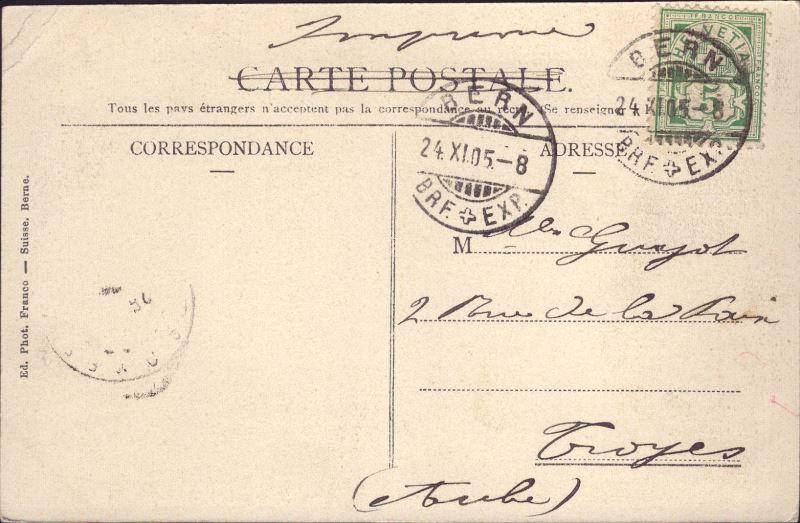 Imprimé
CARTE POSTALE.
Tous les pays étrangers n'acceptent pas la correspondance au recto (Se renseigner
CORRESPONDANCE
ADRESSE
FRANCO
BERN
24.XI.05.-8
BRF. EXP.
BERN
24.XI.05.-8
BRF. EXP.
M
2 Rue de la Paix
Troyes
(Aube)
Ed. Phot. Franco — Suisse, Berne.